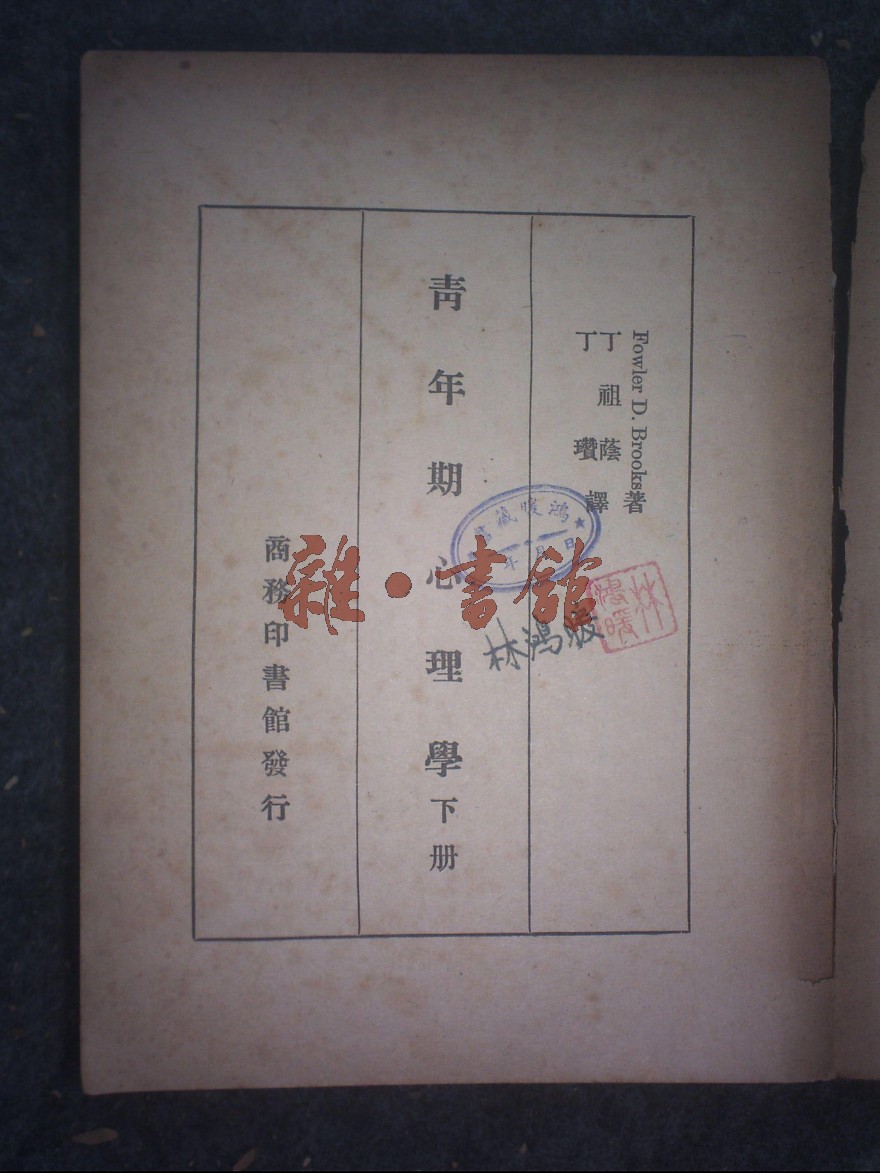 Fowler D. Brooks 著
丁祖蔭
丁瓚
譯
青年期心理學下册
商務印書館發行
鴻暖藏書
年 月 日
林鴻暖
林鴻暖
雜·書館